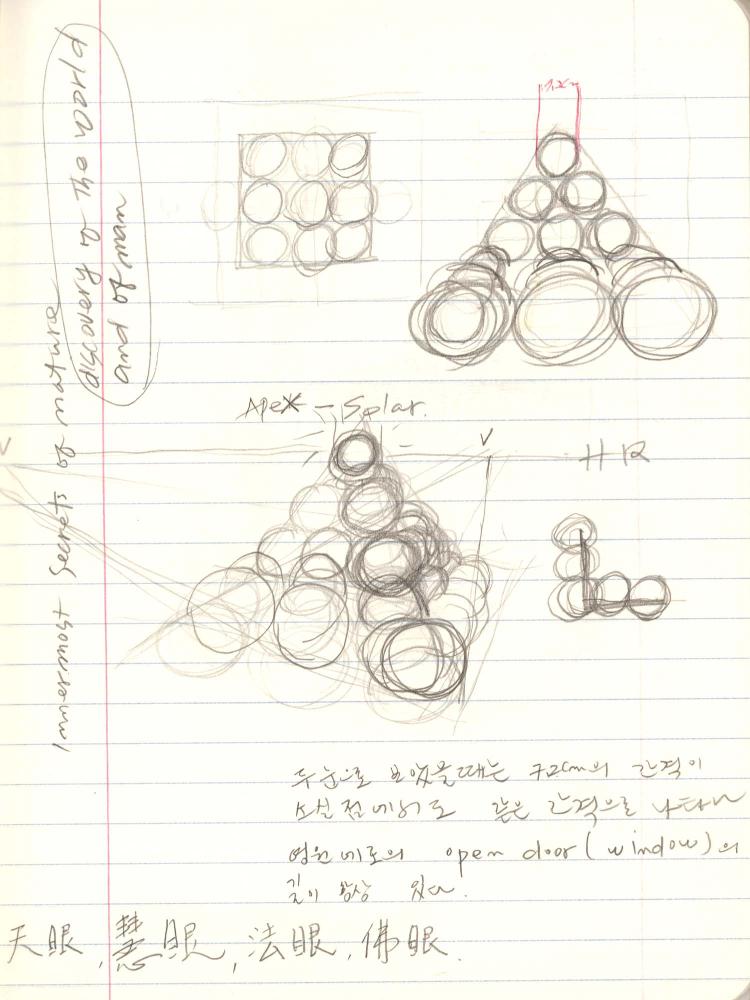 discovery of the world
and of man
Innermost Secrets of nature
Apex - Solar.
V
V
HR
두 눈으로 보았을때는 7.2cm의 간격이
소실점에서도 같은 간격으로 나타나
영원에로의 open door (window)의
길이 항상 있다.
天眼, 慧眼, 法眼, 佛眼.